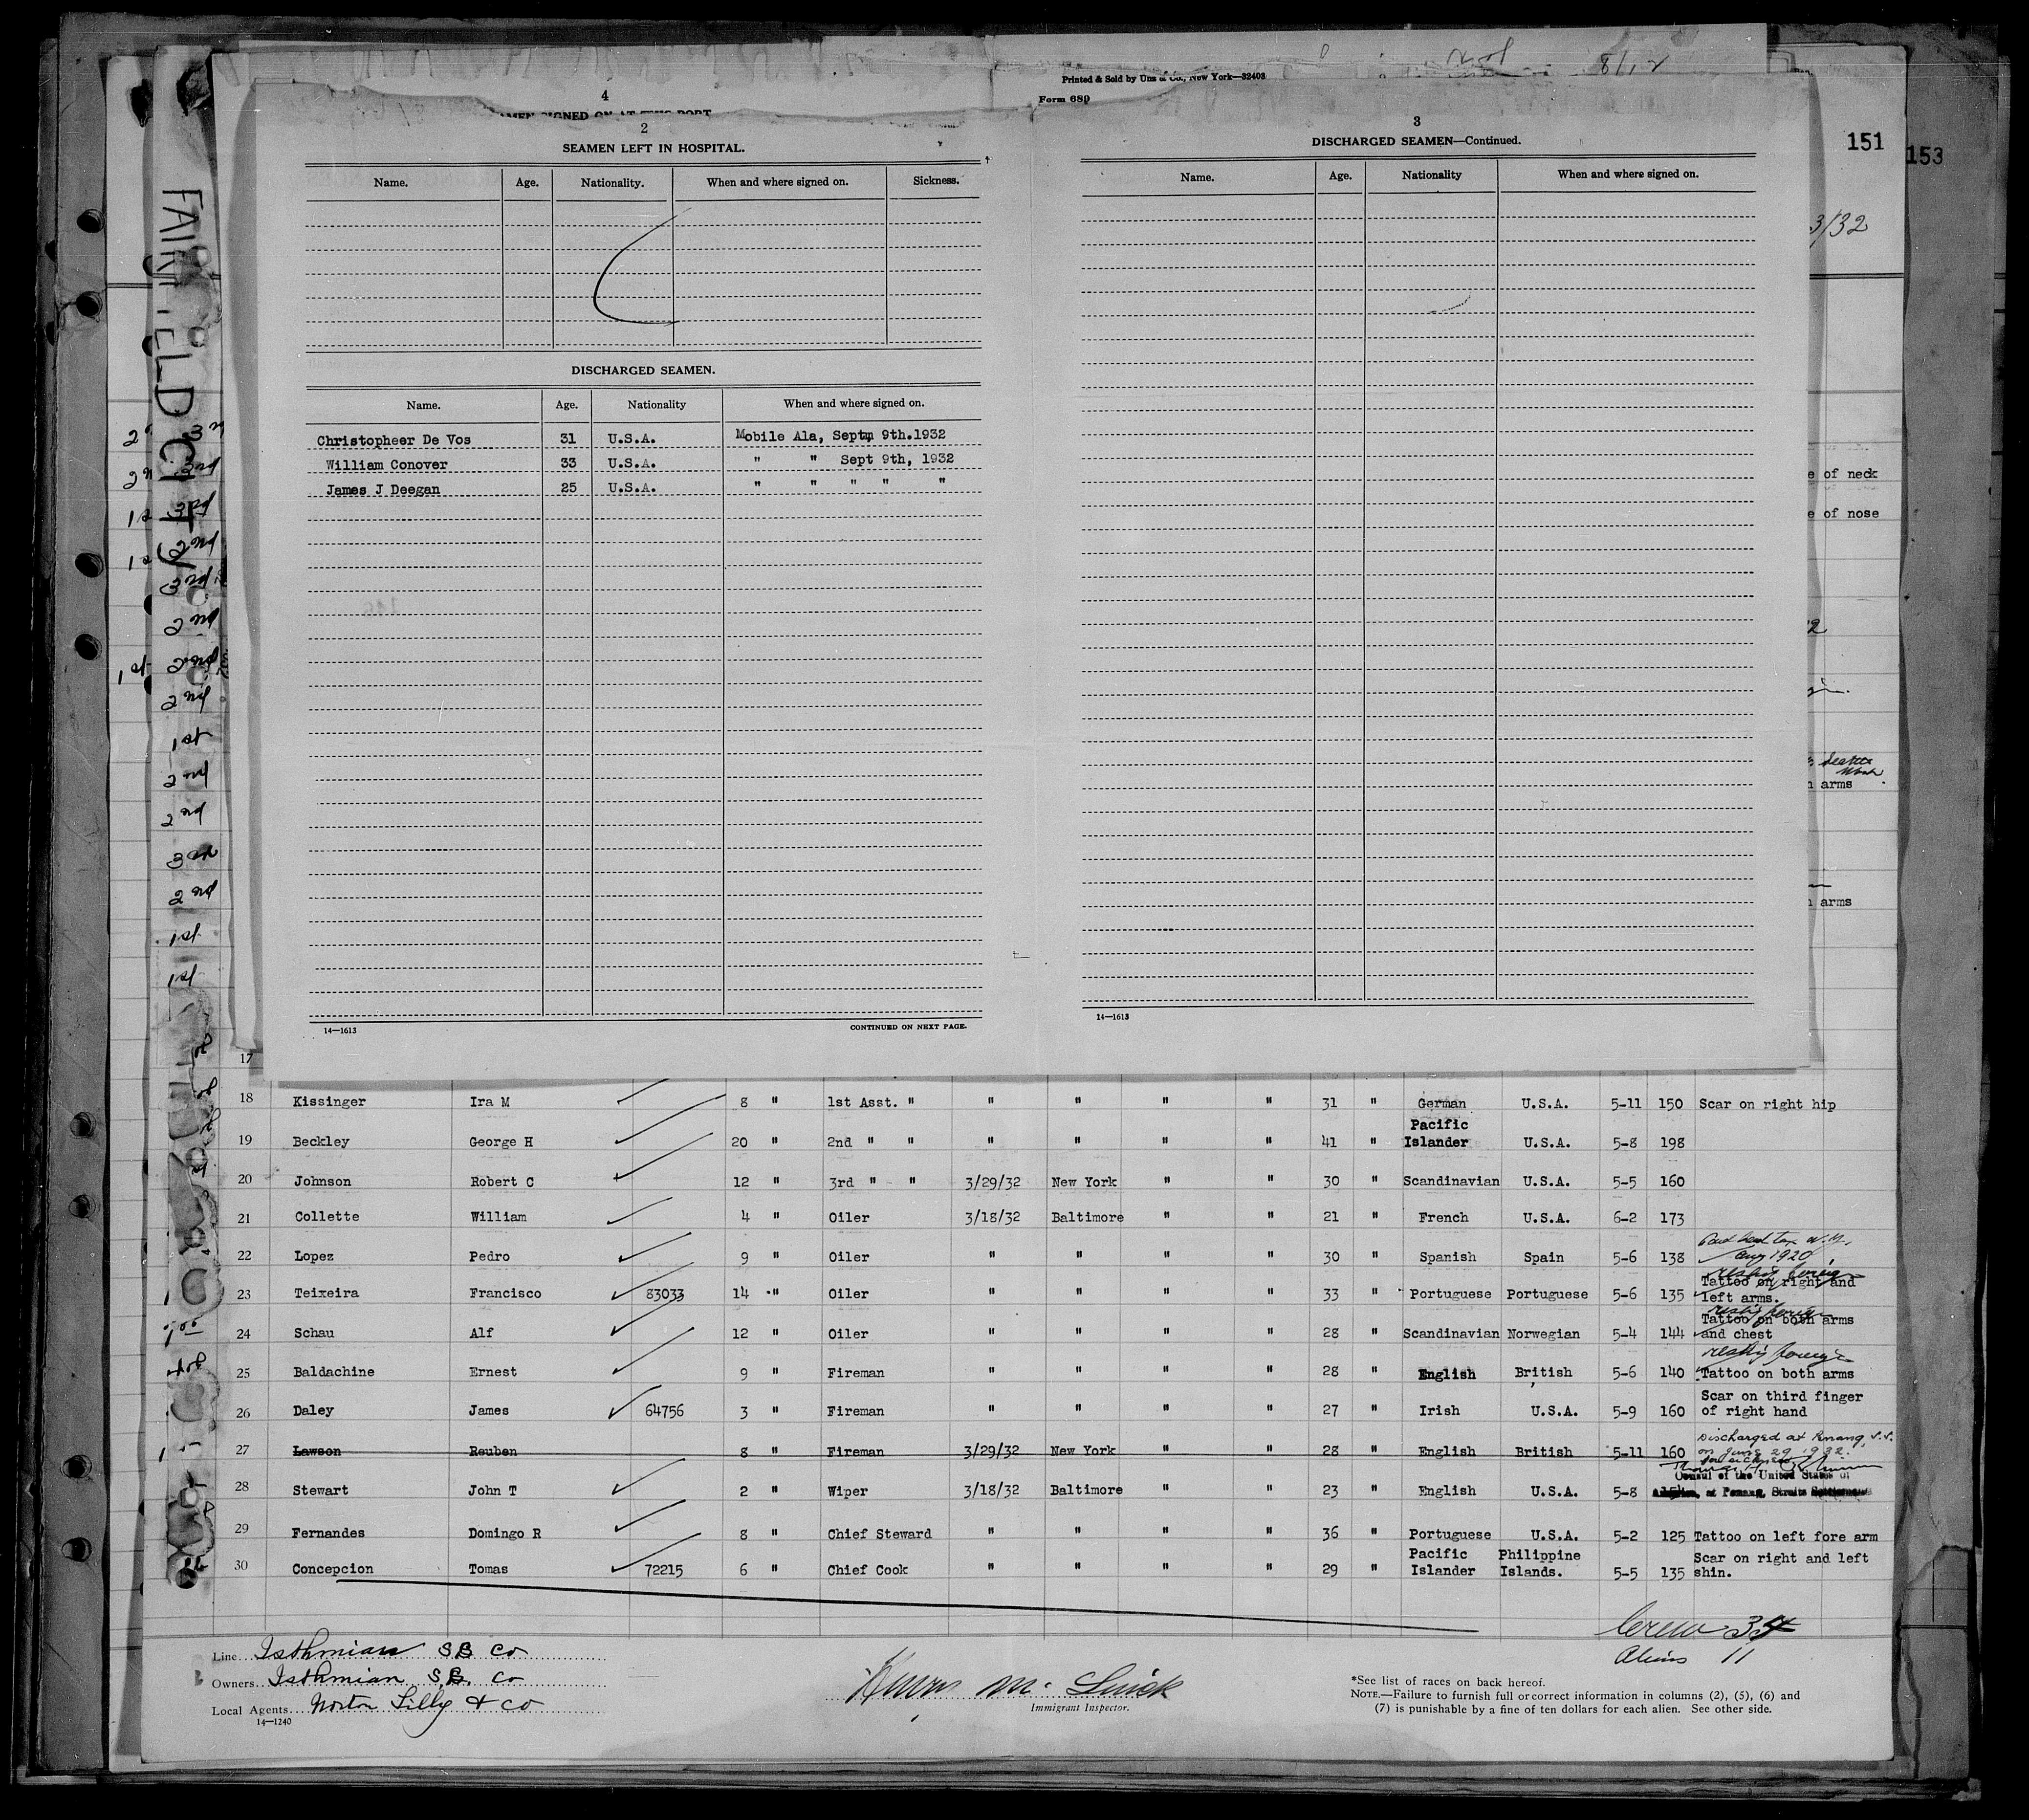 Printed & Sold by Unz & Co., New York—32403
4
Form 689
2
SEAMEN LEFT IN HOSPITAL.
Name. Age. Nationality. When and where signed on. Sickness.
DISCHARGED SEAMEN.
Name. Age. Nationality When and where signed on.
Christopheer De Vos 31 U.S.A. Mobile Ala, Septm 9th.1932
William Conover 33 U.S.A. " " Sept 9th, 1932
James J Deegan 25 U.S.A. " " " " "
14—1613 CONTINUED ON NEXT PAGE.
3
DISCHARGED SEAMEN—Continued.
Name. Age. Nationality When and where signed on.
14—1613
151
153
3/32
e of neck
e of nose
arms
arms
FAIRFIELD CITY
17
18 Kissinger Ira M 8 " 1st Asst. " " " " " 31 " German U.S.A. 5-11 150 Scar on right hip
19 Beckley George H 20 " 2nd " " " " " " 41 " Pacific Islander U.S.A. 5-8 198
20 Johnson Robert C 12 " 3rd " " 3/29/32 New York " " 30 " Scandinavian U.S.A. 5-5 160
21 Collette William 4 " Oiler 3/18/32 Baltimore " " 21 " French U.S.A. 6-2 173
22 Lopez Pedro 9 " Oiler " " " " 30 " Spanish Spain 5-6 138 Paid head tax N.Y. Aug 1920
23 Teixeira Francisco 83033 14 " Oiler " " " " 33 " Portuguese Portuguese 5-6 135 Tattoo on right and left arms.
24 Schau Alf 12 " Oiler " " " " 28 " Scandinavian Norwegian 5-4 144 Tattoo on both arms and chest
25 Baldachine Ernest 9 " Fireman " " " " 28 " English British 5-6 140 Tattoo on both arms
26 Daley James 64756 3 " Fireman " " " " 27 " Irish U.S.A. 5-9 160 Scar on third finger of right hand
27 Lawson Reuben 8 " Fireman 3/29/32 New York " " 28 " English British 5-11 160 Discharged at Penang, S.S. on June 29 1932.
Consul of the United States of
America, at Penang, Straits Settlements
28 Stewart John T 2 " Wiper 3/18/32 Baltimore " " 23 " English U.S.A. 5-8
29 Fernandes Domingo R 8 " Chief Steward " " " " 36 " Portuguese U.S.A. 5-2 125 Tattoo on left fore arm
30 Concepcion Tomas 72215 6 " Chief Cook " " " " 29 " Pacific Islander Philippine Islands. 5-5 135 Scar on right and left shin.
Crew 34
Aliens 11
Line Isthmian SS Co
Owners Isthmian SS. Co
Local Agents Norton Lilly & Co
14—1240
Immigrant Inspector.
*See list of races on back hereof.
NOTE.—Failure to furnish full or correct information in columns (2), (5), (6) and
(7) is punishable by a fine of ten dollars for each alien. See other side.